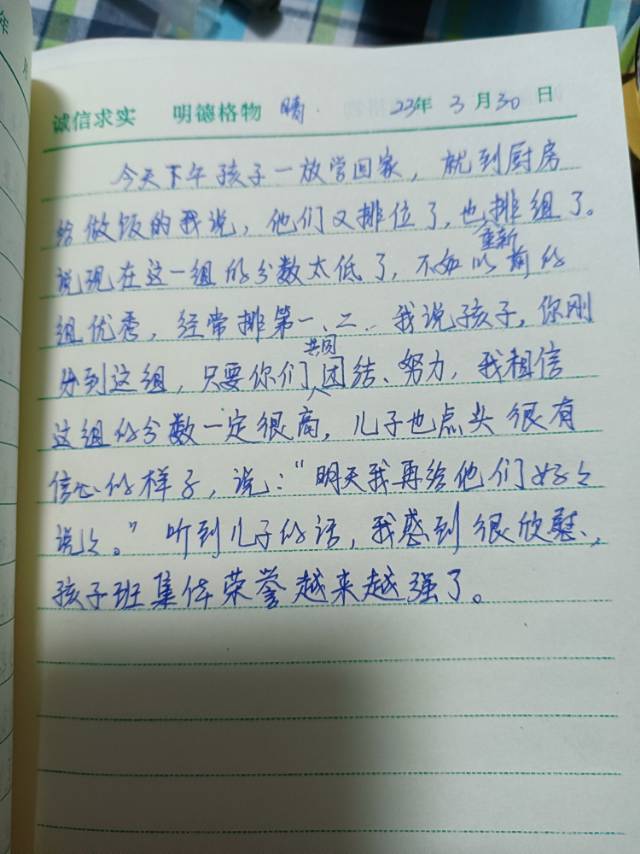 诚信求实 明德格物 晴. 23年 3月30日
今天下午孩子一放学回家，就到厨房
给做饭的我说，他们又排位了，也排组了。
重新
说现在这一组的分数太低了，不如以前的
组优秀，经常排第一、二.. 我说孩子，你刚
共同
分到这组，只要你们团结、努力，我相信
这组的分数一定很高，儿子也点头很有
信心的样子，说：“明天我再给他们好々
说々。”听到儿子的话，我感到很欣慰，
孩子班集体荣誉越来越强了。